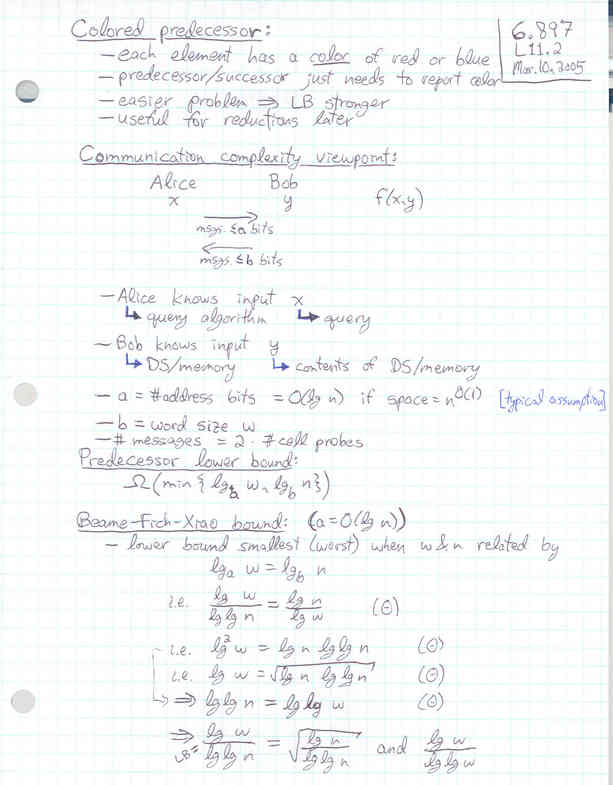 6.897
L11.2
Mar. 10, 2005
Colored predecessor:
— each element has a color of red or blue
— predecessor/successor just needs to report color
— easier problem ⇒ LB stronger
— useful for reductions later
Communication complexity viewpoint:
Alice Bob
x y f(x,y)
→
msgs. ≤a bits
←
msgs. ≤b bits
— Alice knows input x
↳ query algorithm ↳ query
— Bob knows input y
↳ DS/memory ↳ contents of DS/memory
— a = #address bits = O(lg n) if space = n^O(1) [typical assumption]
— b = word size w
— # messages = 2 · # cell probes
Predecessor lower bound:
Ω(min { lg_a w, lg_b n })
Beame-Fich-Xiao bound: (a = O(lg n))
— lower bound smallest (worst) when w & n related by
lg_a w = lg_b n
i.e. lg w / lg lg n = lg n / lg w (Θ)
i.e. lg² w = lg n lg lg n (Θ)
i.e. lg w = √(lg n lg lg n) (Θ)
⇒ lg lg n = lg lg w (Θ)
⇒ LB = lg w / lg lg n = √(lg n / lg lg n) and lg w / lg lg w